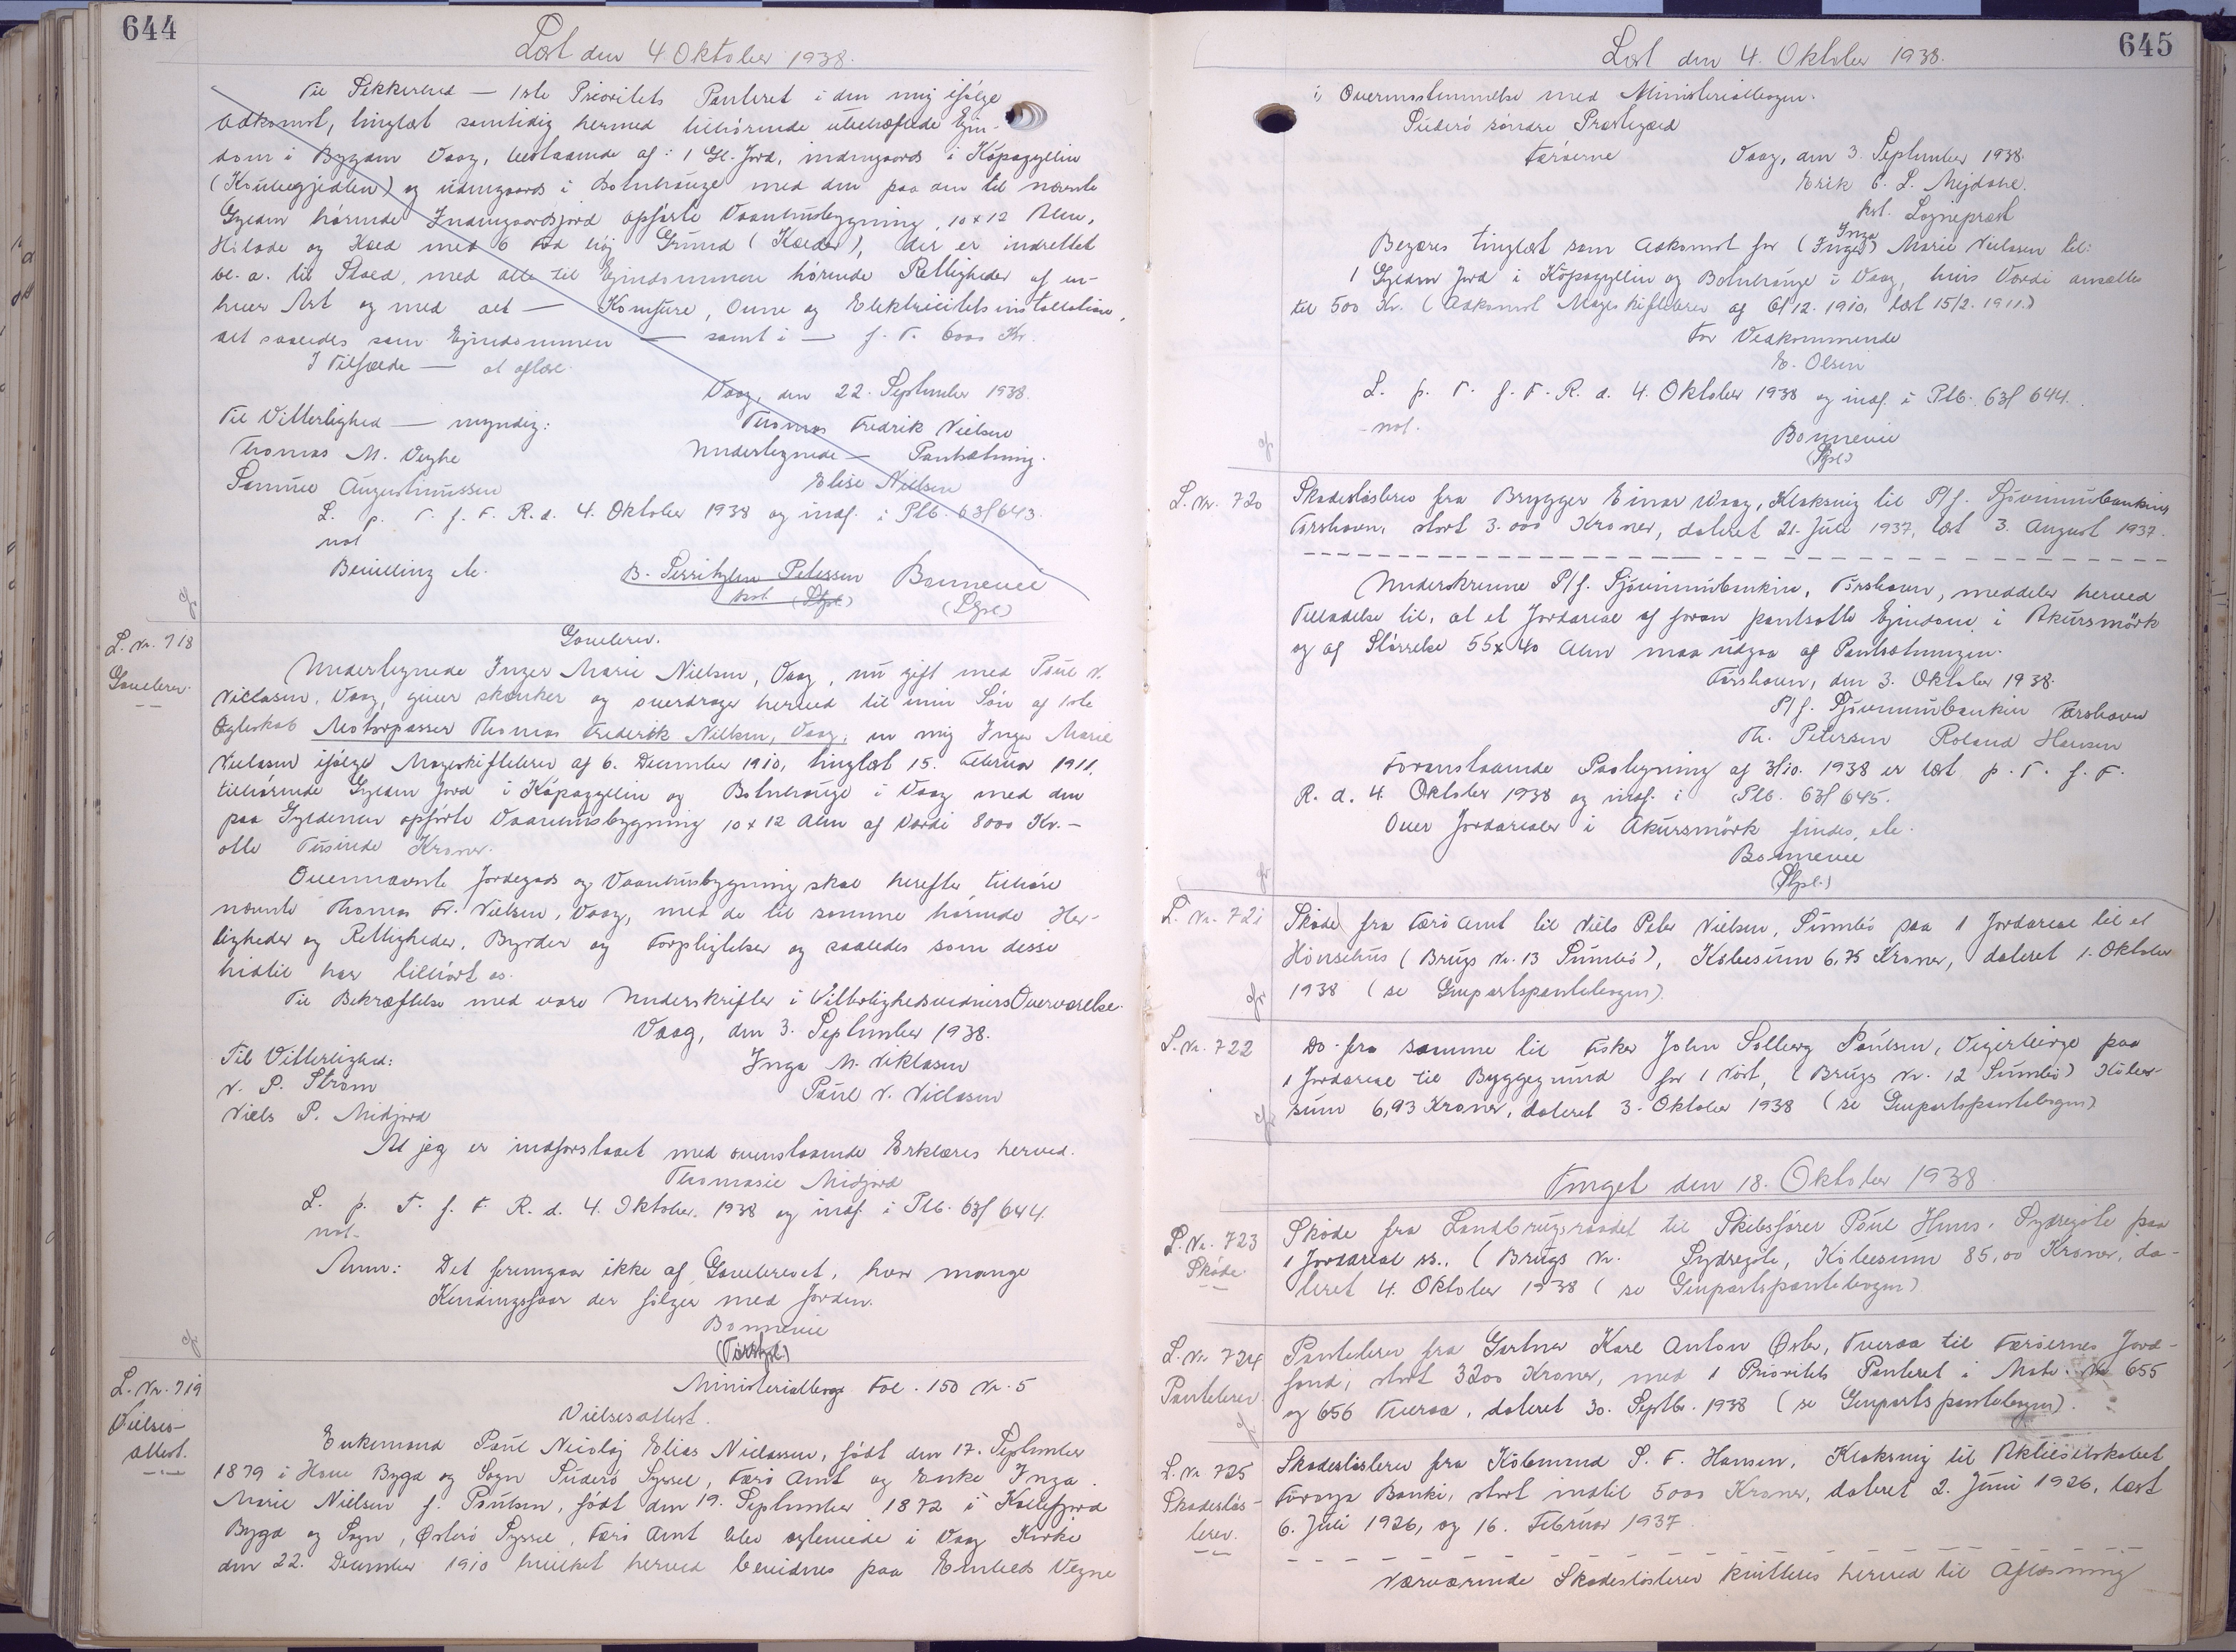 644
Læst den 4. Oktober 1938.
Til Sikkerhed — 1ste Prioritets Panteret i den mig ifølge
Adkomst, tinglæst samtidig hermed tilhørende ubehæftede Ejen-
dom i Bygden Vaag, bestaaende af: 1 Gl. Jord, indengaards i Köpagyllin
og udengaards i Botnhauge med den paa den til nævnte
Gylden hørende Indengaardsjord opførte Vaanhusbygning, 10 x 12 Alen,
Hjlade og Kæld med 6 Fod høj Grund (Kælder), der er indrettet
bl. a. til Stald, med alle til Ejendommen hørende Rettigheder af en-
hver Art og med det — Komfure, Ovne og Elektricitetsinstallation,
alt saaledes som Ejendommen — samt i — f. T. 6000 Kr.
I Tilfælde — at aflæse.
Vaag, den 22. September 1938.
Til Vitterlighed — myndig:
Thomas Fredrik Nielsen
Thomas M. Veyhe
Undertegnede — Pantsætning.
Samuel Augustinussen
Elise Nielsen
L. p. T. f. F. R. d. 4. Oktober 1938 og indf. i Ptb. 63f 643.
not
Bevilling etc.
B. Serritzlew Petersen
kst. (Stpl)
Bonnevie
(Stpl)
L. Nr. 718
Gavebrev.
Gavebrev.
Undertegnede Inger Marie Nielsen, Vaag, nu gift med Poul N.
Niclasen, Vaag, giver skænker og overdrager herved til min Søn af 1ste
Ægteskab Motorpasser Thomas Frederik Nielsen, Vaag, en mig Inger Marie
Niclasen ifølge Mageskiftebrev af 6. December 1910, tinglæst 15. Februar 1911,
tilhørende Gylden Jord i Köpagyllin og Botnhauge i Vaag med den
paa Gyldenen opførte Vaanhusbygning 10 x 12 Alen af Værdi 8000 Kr. —
otte Tusinde Kroner.
Ovennævnte Jordegods og Vaanhusbygning skal herefter tilhøre
nævnte Thomas Fr. Nielsen, Vaag, med de til samme hørende Her-
ligheder og Rettigheder, Byrder og Forpligtelser og saaledes som disse
hidtil har tilhørt os.
Til Bekræftelse med vore Underskrifter i Vitterlighedsvidners Overværelse.
Vaag, den 3. September 1938.
Til Vitterlighed:
Inga M. Niklasen
N. P. Strøm
Poul N. Niclasen
Niels P. Midjord
At jeg er indforstaaet med ovenstaaende Erklæres herved.
Thomasie Midjord
L. p. T. f. F. R. d. 4. Oktober 1938 og indf. i Ptb. 63f 644.
not.
Anm: Det fremgaar ikke af Gavebrevet, hvor mange
Kendingsfaar der følger med Jorden.
Bonnevie
L. Nr. 719
Vielses-
attest.
Ministerialbogs Fol. 150 Nr. 5
Vielsesattest.
Enkemand Poul Nicolaj Elias Niclassen, født den 17. September
1879 i Hove Bygd og Sogn Suderø Syssel, Færø Amt og Enke Inga
Marie Nielsen f. Poulsen, født den 19. September 1872 i Kollefjord
Bygd og Sogn, Østerø Syssel, Færø Amt blev ægteviede i Vaag Kirke
den 22. December 1910 hvilket herved bevidnes paa Embeds Vegne
645
Læst den 4. Oktober 1938.
i Overensstemmelse med Ministerialbogen.
Suderö söndre Præstegæld
Færöerne Vaag, den 3. September 1938.
Erik B. L. Mejdahl.
kst. Sognepræst
Inga
Begæres tinglæst som Adkomst for (Inger) Marie Niclasen til:
1 Gylden Jord i Köpagyllin og Botnhauge i Vaag, hvis Værdi ansættes
til 500 Kr. (Adkomst Mageskiftebrev af 6/12. 1910, læst 15/2. 1911.)
For Vedkommende
E. Olsen
L. p. T. f. F. R. d. 4. Oktober 1938 og indf. i Ptb. 63f 644.
not.
Bonnevie
(Stpl)
L. Nr. 720
Skadesløsbrev fra Brygger Einar Waag, Klaksvig til P/f. Sjóvinnubankin
Torshavn, stort 3.000 Kroner, dateret 21. Juli 1937, læst 3. August 1937.
Underskrevne P/f. Sjóvinnubankin, Tórshavn, meddeler herved
Tilladelse til, at et Jordareal af foran pantsatte Ejendom i Akursmörk
og af Størrelse 55 x 40 Alen maa udgaa af Pantsætningen.
Tórshavn, den 3. Oktober 1938.
P/f. Sjóvinnubankin Tórshavn
Th. Petersen Roland Hansen
Foranstaaende Paategning af 3/10. 1938 er læst p. T. f. F.
R. d. 4. Oktober 1938 og indf. i Ptb. 63f 645.
Over Jordarealer i Akursmörk findes, etc.
Bonnevie
(Stpl.)
L. Nr. 721
Skøde fra Færö Amt til Niels Peter Nielsen, Sumbö paa 1 Jordareal til et
Hönsehus (Brugs Nr. 13 Sumbö), Købesum 6,75 Kroner, dateret 1. Oktober
1938 (se Genpartspantebogen).
L. Nr. 722
Do. fra samme til Fisker John Solberg Poulsen, Vigerbirge paa
1 Jordareal til Byggegrund for 1 Nöst, (Brugs Nr. 12 Sumbö) Købe-
sum 6,93 Kroner, dateret 3. Oktober 1938 (se Genpartspantebogen)
Tinget den 18. Oktober 1938.
L. Nr. 723
Skøde
Skøde fra Landbrugsraadet til Skibsfører Poul Hans. Sydregöte paa
1 Jordareal ss., (Brugs Nr. Sydregöte, Købesum 85,00 Kroner, da-
teret 4. Oktober 1938 (se Genpartspantebogen)
L. Nr. 724
Pantebrev
Pantebrev fra Gartner Karl Anton Øster, Tveraa til Færöernes Jord-
fond, stort 3200 Kroner, med 1 Prioritets Panteret i Matr. Nr. 655
og 656 Tveraa, dateret 30. Septbr. 1938 (se Genpartspantebogen).
L. Nr. 725
Skadesløs-
brev.
Skadesløsbrev fra Købmand S. F. Hansen, Klaksvig til Aktieselskabet
Föroya Banki, stort indtil 5000 Kroner, dateret 2. Juni 1926, læst
6. Juli 1926, og 16. Februar 1937.
Nærværende Skadesløsbrev kvitteres herved til Aflæsning